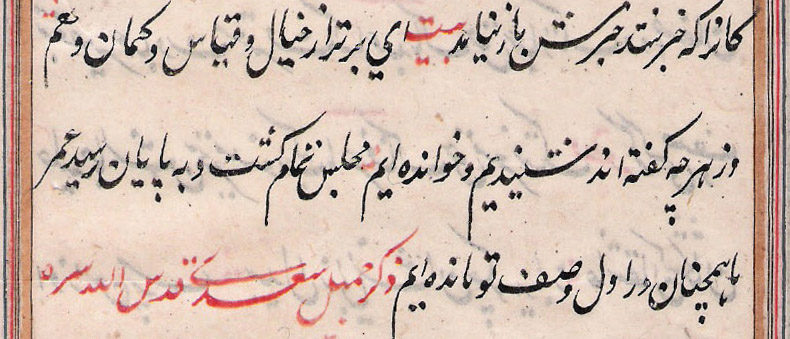 کانرا که خبر شد خبرش باز نیامد بیت ای برتر از خیال و قیاس و کمان و وهم
وز هر چه کفته اند شنیدیم و خوانده ایم مجلس تمام کشت و به پایان رسید عمر
ما همچنان در اول وصف تو مانده ایم ذکر جمیل سعدی قدس الله سره